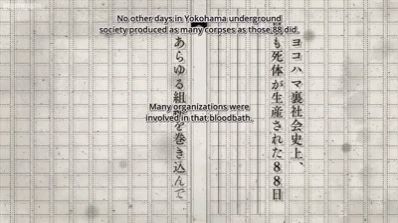 No other days in Yokohama underground
society produced as many corpses as those 88 did.
ヨコハマ裏社会史上、
も死体が生産された88日
Many organizations were
involved in that bloodbath.
あらゆる組織を巻き込んで